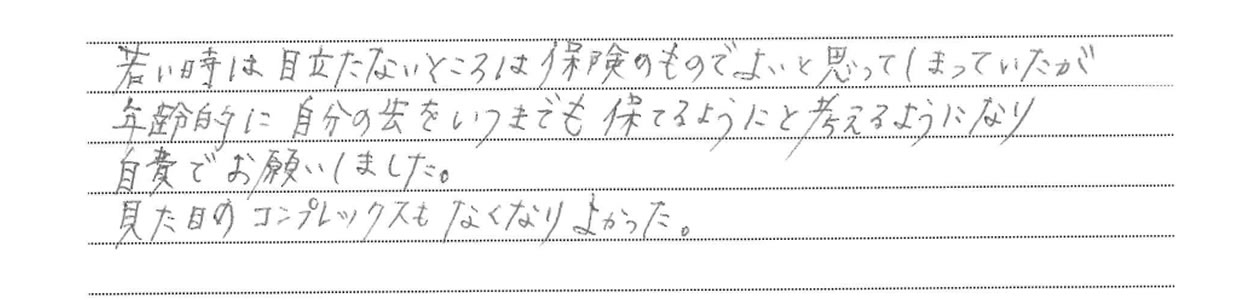 若い時は目立たないところは保険のものでよいと思ってしまっていたが
年齢的に自分の歯をいつまでも保てるようにと考えるようになり
自費でお願いしました。
見た目のコンプレックスもなくなりよかった。